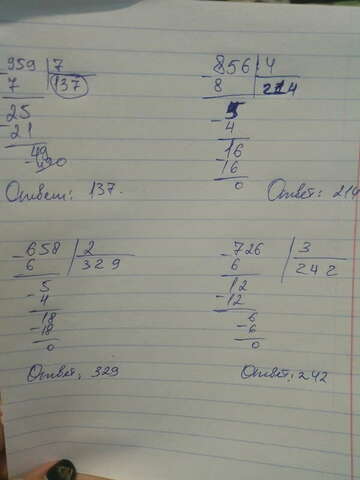 -959 | 7
7 | 137
25
-21
49
Ответ: 137.
-856 : 4
8 | 214
5
-4
16
-16
0
Ответ: 214
-658 | 2
6 | 329
-5
4
18
-18
0
Ответ: 329
-726 | 3
6 | 242
12
-12
6
-6
0
Ответ: 242